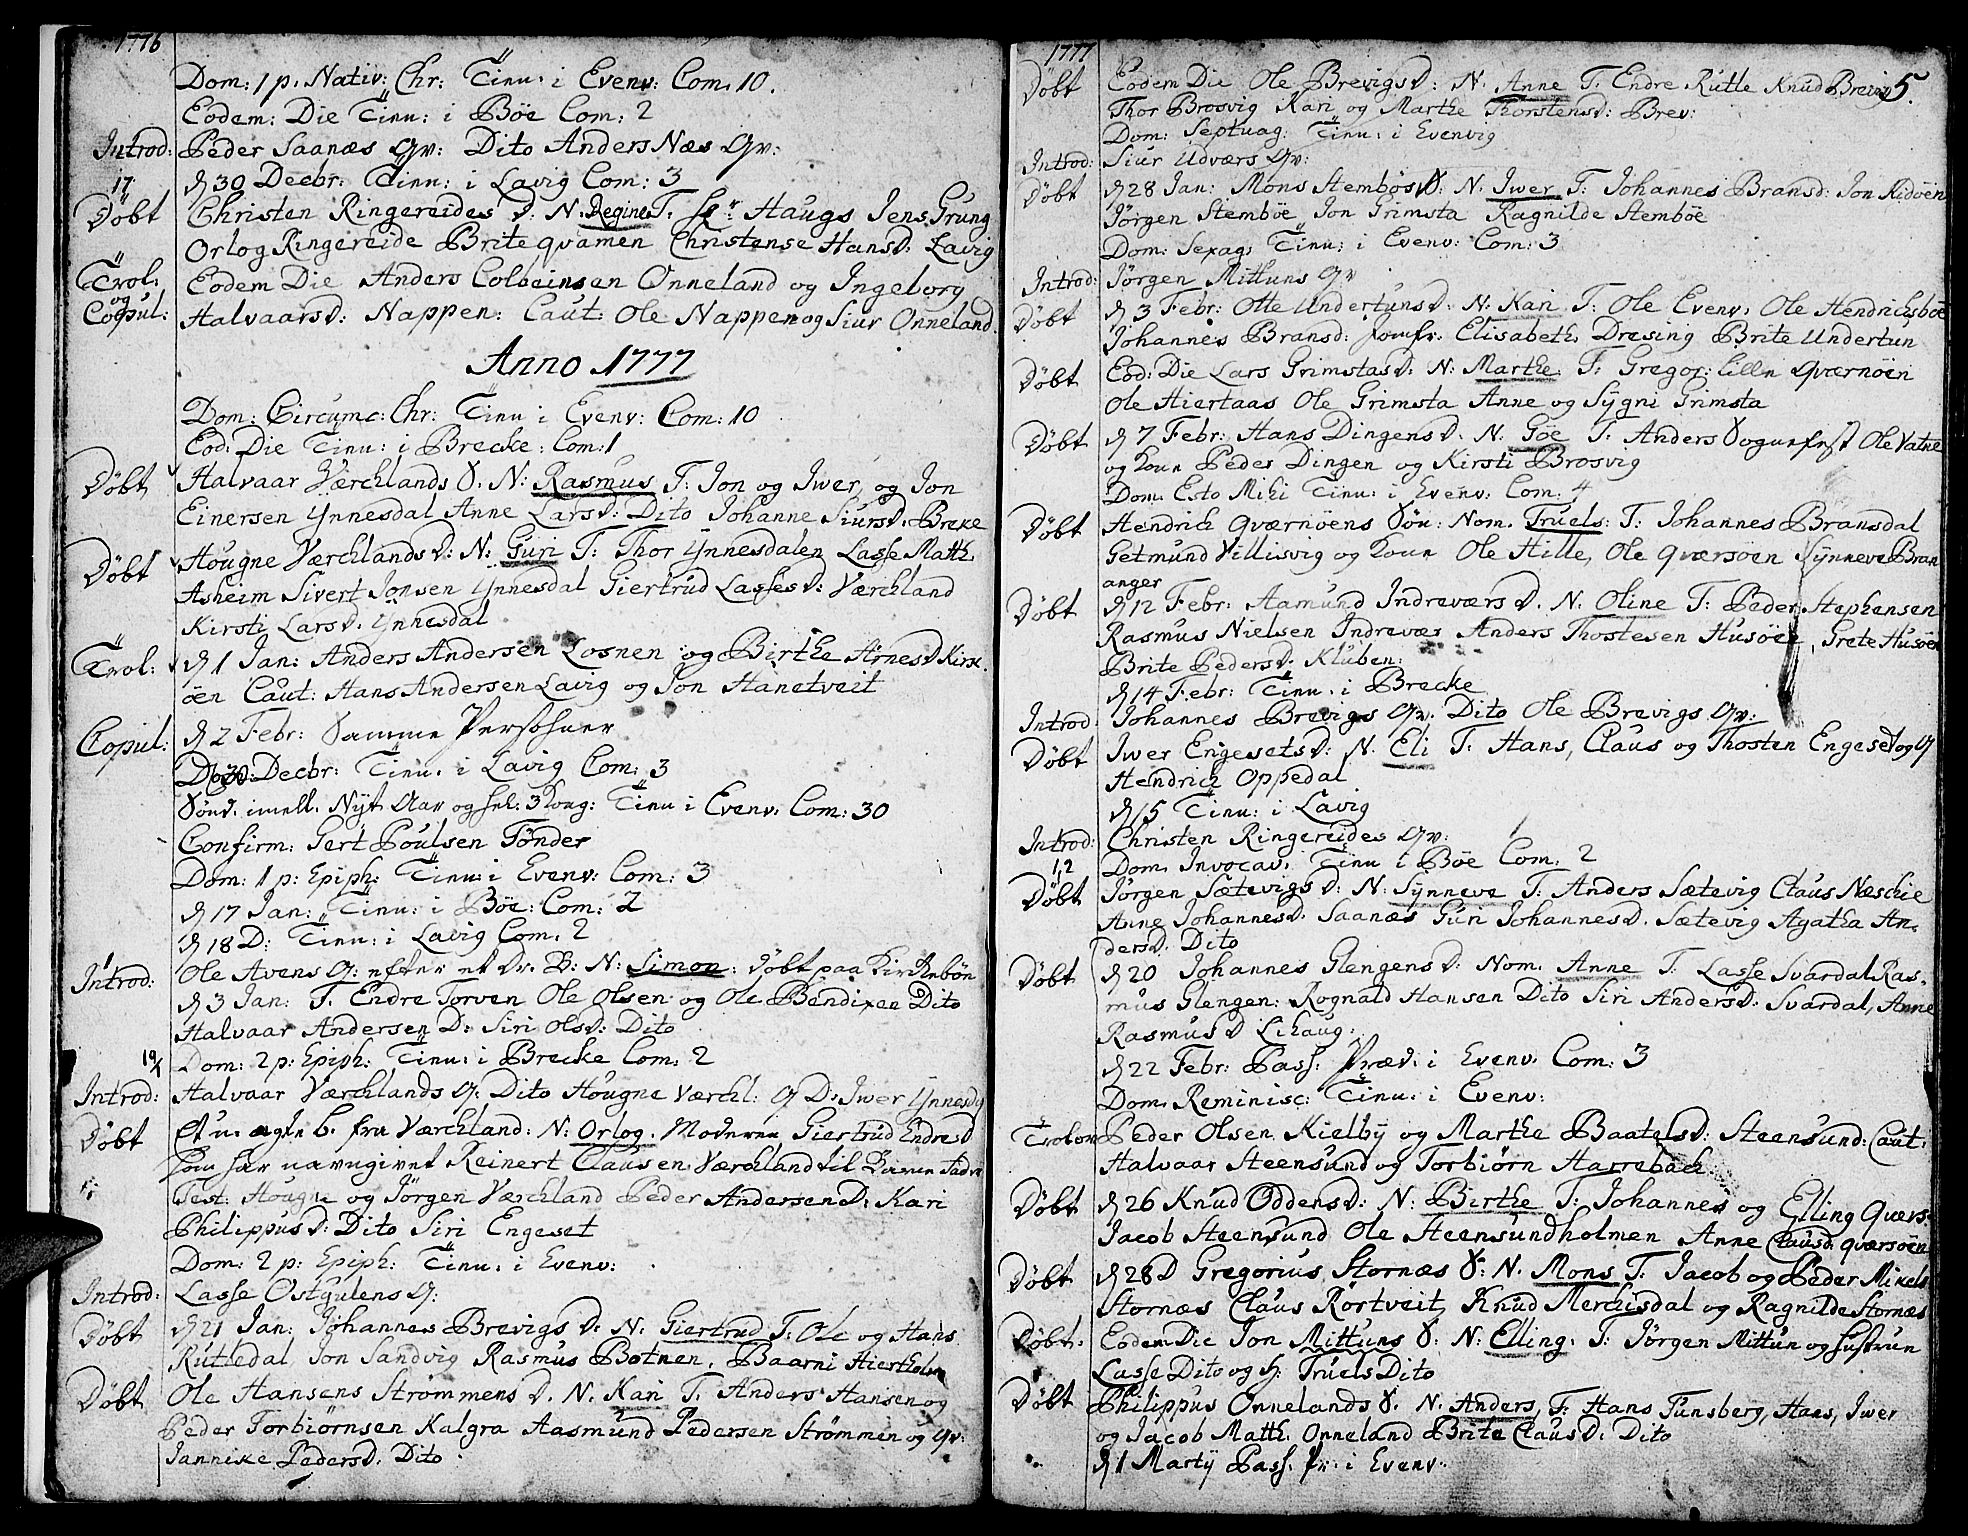 1776
Dom: 1 p. Nativ: Chr: Tinu: i Evenv: Com: 10.
Eodem: Die Tinu: i Böe Com: 2
Introd: Peder Saanæs Qv: Dito Anders Næs Qv:
17 30 Decbr: Tinu: i Lavig Com: 3
Döbt Christen Ringereides D: N: Regine T. Sr Haugs Jens Grung
Orlog Ringereide Brite Qvamen Christense Hansd: Lavig
Trol: Eodem Die Anders Colbeinsen Önneland og Ingeborg
og Copul: Halvaarsd: Nappen: Caut: Ole Nappen og Siur Önneland.
Anno 1777
Dom: Circumc: Chr: Tinu i Evenv: Com: 10
Eod: Die Tinu: i Brecke: Com: 1
Döbt Halvaar Værchlands S. N: Rasmus T: Jon og Iwer og Jon
Einersen Ynnesdal Anne Larsd: Dito Johanne Siursd: Breke
Döbt Hougne Værchlands D: N: Guri T: Thor Ynnesdalen Lasse Matth.
Asheim Sivert Jonsen Ynnesdal Giertrud Lassesd: Værchland
Kirsti Larsd. Ynnesdal
Trol: 1 Jan: Anders Andersen Losnen og Birthe Arnesd Kirk-
öen Caut: Hans Andersen Lavig og Jon Hanetveit
Copul: 2 Febr: Samme Personer
30 Decbr: Tinu. i Lavig Com: 3
Sönd. imell. Nyt Aar og hel: 3 Kong: Tinu i Evenv. Com: 30
Confirm: Gert Poulsen Tönder
Dom: 1 p: Epiph: Tinu: i Evenv: Com: 3
17 Jan: Tinu: i Böe: Com: 2
18 D: Tinu: i Lavig Com: 2
Introd: Ole Avens Q: efter et Dr. B: N: Simon: Döbt paa Kirchebön
3 Jan: T. Endre Torven Ole Olsen og Ole Bendixen Dito
Halvaar Andersen D: Siri Olsd: Dito
19 Dom: 2 p: Epiph: Tinu: i Brecke Com: 2
Introd: Halvaar Værchlands Q: Dito Hougne Værchl: Q D: Iwer Ynnesd
Döbt Et u: ægte b. fra Værchland: N: Orlog. Moderen Giertrud Endresd
som har navngivet Reinert Clausen Værchland til Barne Fader
Test: Hougne og Jörgen Værchland Peder Andersen D: Kari
Philippusd: Dito Siri Engeset
Dom: 2 p: Epiph: Tinu: i Evenv:
Introd: Lasse Ostgulens Q:
Döbt 21 Jan: Johannes Brevigs D: N: Giertrud T: Ole og Hans
Rutledal, Jon Sandvig Rasmus Botnen, Baarni Hiertholm
Döbt Ole Hansens Strömmens D. N. Kari T. Anders Hansen og
Peder Torbiörnsen Kalgra Aasmund Pedersen Strömmen og Qv:
Jannike Pedersd. Dito
1777
5.
Döbt Eodem Die Ole Brevigs D: N: Anne T. Endre Rutle Knud Brevig
Thor Brosvig Kari og Marthe Thorstensd: Brev:
Dom: Septuag: Tinu: i Evenvig
Introd: Siur Udværs Qv:
Döbt 28 Jan: Mons Stembös S. N. Iwer T. Johannes Bransd: Jon Kidöen
Jörgen Stemböe Jon Grimsta Ragnilde Stemböe
Dom: Sexag: Tinu: i Evenv: Com: 3
Introd: Jörgen Mittuns Qv
Döbt 3 Febr: Otte Undertuns D: N: Kari T: Ole Evenv. Ole Hendrichsböe
Johannes Bransd: Jomfr: Elisabeth Dresing Brite Undertun
Döbt Eod: Die Lars Grimstas D: N: Marthe T: Gregor: Lille Qværnöen
Ole Hiertaas Ole Grimsta Anne og Sygni Grimsta
Döbt 7 Febr: Hans Dingens D. N. Göe T. Anders Sognefest Ole Vatne
og Kone Peder Dingen og Kirsti Brosvig
Dom: Esto Mihi Tinu: i Evenv: Com: 4
Döbt Hendrich Qværnöens Sön: Nom. Truels: T: Johannes Bransdal
Getmund Villisvig og Kone Ole Hille, Ole Qværsöen Synneve Bran
anger
Döbt 12 Febr: Aamund Indreværs D. N: Oline T: Peder Stephensen
Rasmus Nielsen Indrevær Anders Thostesen Husöe, Grete Husöen
Brite Pedersd. Kluben:
14 Febr: Tinu. i Brecke
Introd Johannes Brevigs Qv: Dito Ole Brevigs Qv:
Döbt Iwer Engesets D: N. Eli T: Hans, Claus og Thosten Engeset og Q
Hendrich Oppedal
15 Tinu: i Lavig
Introd: Christen Ringereides Qv:
1,2 Dom. Invocav: Tinu i Böe Com: 2
Döbt Jörgen Sætevigs D: N: Synneve T: Anders Sætevig Claus Næschie
Anne Johannesd. Saanæs Guri Johannesd. Sætevig Agatha An-
dersd. Dito
Döbt 20 Johannes Glengens D: Nom. Anne T. Lasse Svardal Ras-
mus Glengen: Rognald Hansen Dito Siri Andersd: Svardal, Anne
Rasmusd Lihaug:
22 Febr: Pass: Præd. i Evenv. Com: 3
Dom. Reminisc: Tinu: i Evenv:
Trolov Peder Olsen Kielby og Marthe Baatelsd: Steensund: Caut:
Halvaar Steensund og Torbiörn Harrebach
Döbt 26 Knud Oddens D: N: Birthe T: Johannes og Elling Qvers-
Jacob Steensund Ole Steensundholmen Anne Clausd: Qværsöen
Döbt 28 D Gregorius Stornæs S: N. Mons T. Jacob og Peder Mikels
Stornæs Claus Rörtveit, Knud Merchisdal og Ragnilde Stornæs
Döbt: Eodem Die Jon Mittuns S: N: Elling. T: Jörgen Mittun og Hustrue
Lasse Dito og H: Truels Dito
Döbt Philippus Önnelands S. N. Anders, T: Hans Tunsberg, Hans, Iwer
og Jacob Matth. Önneland Brite Clausd. Dito
1 Martij Pass: Pr: i Evenv.